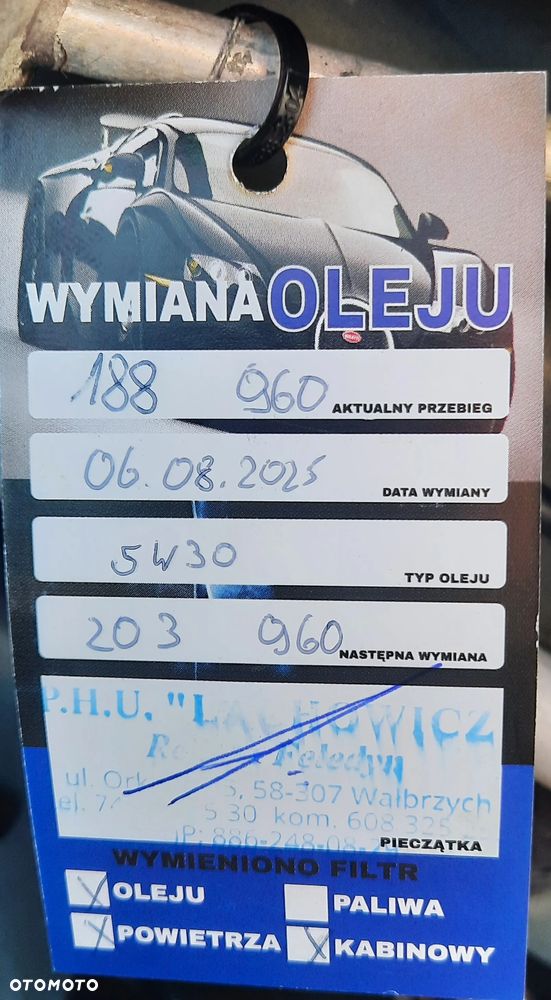 WYMIANA OLEJU
188 960 AKTUALNY PRZEBIEG
06.08.2025 DATA WYMIANY
5W30 TYP OLEJU
203 960 NASTĘPNA WYMIANA
P.H.U. "LACHOWICZ
Feledyn
ul. 58-307 Wałbrzych
kom. 608
886-248-08-
PIECZĄTKA
WYMIENIONO FILTR
X OLEJU PALIWA
X POWIETRZA X KABINOWY
OTOMOTO